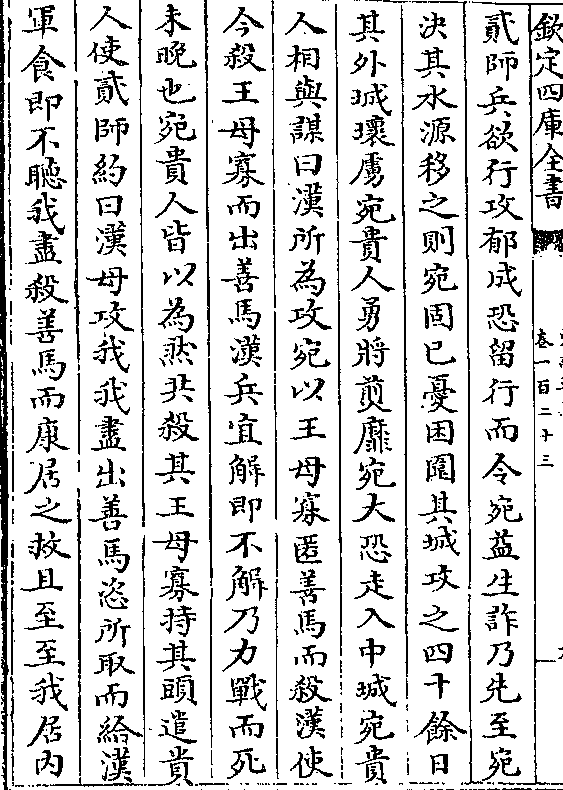 欽定四庫全書
卷一百二十三
貳師兵欲行攻郁成恐留行而令宛益生詐乃先至宛
決其水源移之則宛固已憂困圍其城攻之四十餘日
其外城壞虜宛貴人勇將煎靡宛大恐走入中城宛貴
人相與謀曰漢所為攻宛以王母寡匿善馬而殺漢使
今殺王母寡而出善馬漢兵宜解即不解乃力戰而死
未晚也宛貴人皆以為然共殺其王母寡持其頭遣貴
人使貳師約曰漢毋攻我我盡出善馬恣所取而給漢
軍食即不聽我盡殺善馬而康居之救且至至我居內